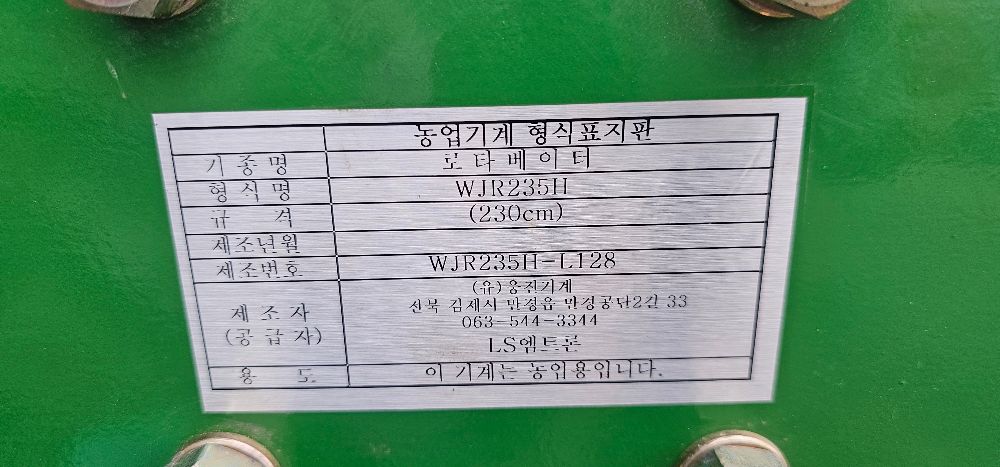 농업기계 형식표지판
기종명 로타베이터
형식명 WJR235H
규격 (230cm)
제조년월
제조번호 WJR235H-L128
제조자 (유)웅진기계
(공급자) 전북 김제시 만경읍 만경공단2길 33
063-544-3344
LS엠트론
용도 이 기계는 농업용입니다.